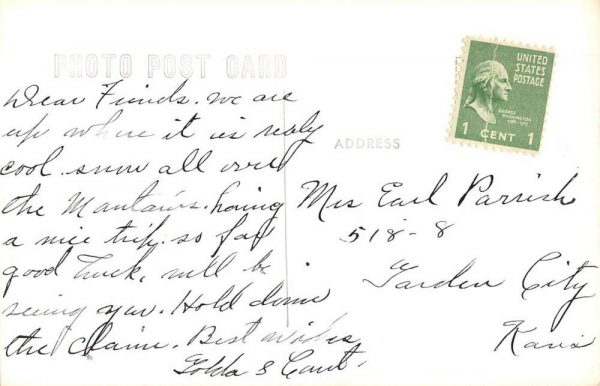 PHOTO POST CARD
Dear Finds. we are
up where it is realy
cool. snow all over
the Mantains. having
a nice trip. so far
good luck. will be
seeing you. Hold down
the claim. Best wishes
Golda &
ADDRESS
Mrs Earl Parrish
518-8
Garden City
Kans
UNITED
STATES
POSTAGE
GEORGE
WASHINGTON
1 CENT 1